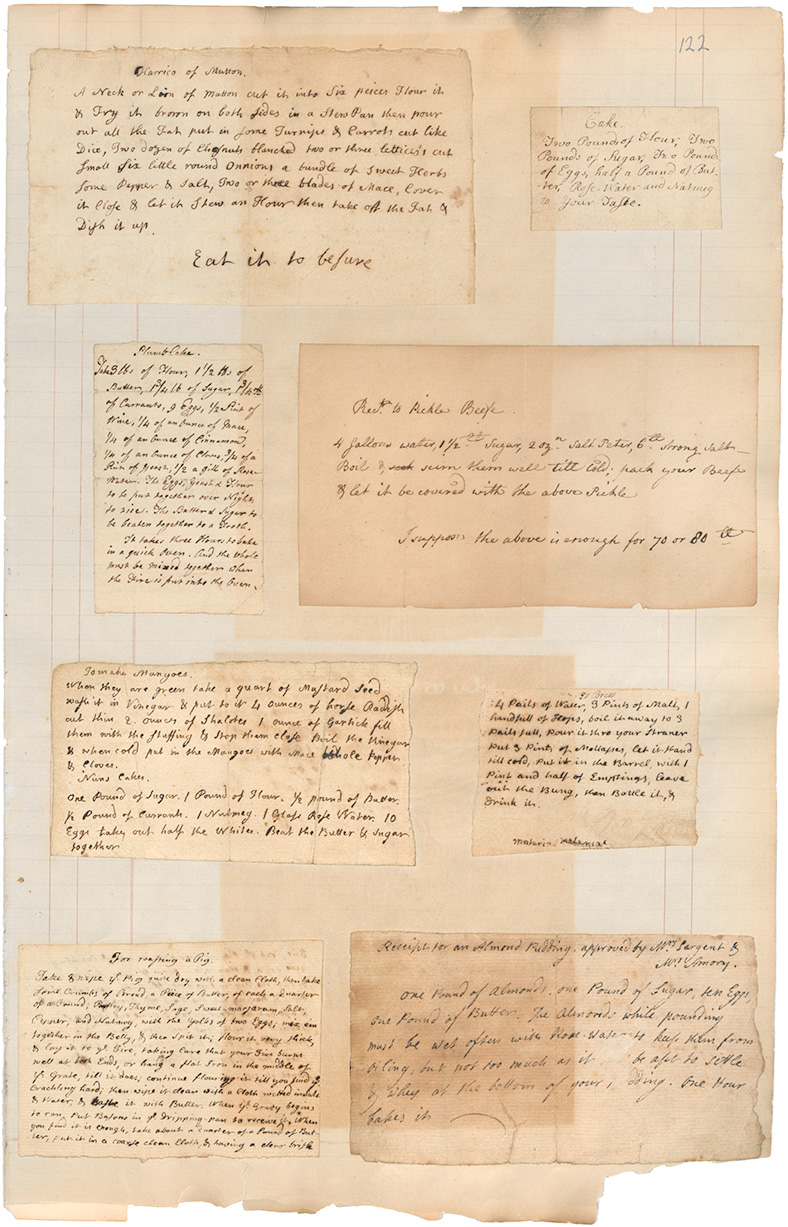 122
Harrico of Mutton.
A Neck or Loin of Mutton cut it into Six peices Flour it
& Fry it brown on both sides in a Stew Pan then pour
out all the Fat put in some Turnips & Carrots cut like
Dice, Two dozen of Chesnuts blanched two or three lettices cut
Small Six little round Onnions a bundle of Sweet Herbs
some Pepper & Salt, Two or three blades of Mace, Cover
it Close & let it Stew an Hour then take off the Fat &
Dish it up.
Eat it to besure
Cake.
Two Pounds of Flour, Two
Pounds of Sugar, Two Pounds
of Eggs, half a Pound of But-
ter, Rose-Water and Nutmeg
to your Taste.
Plumb Cake.
Take 3 lbs of Flour, 1 1/2 lbs of
Butter, 1 3/4 lb of Sugar, 1 3/4 lb
of Currants, 9 Eggs, 1/2 Pint of
Wine, 1/4 of an Ounce of Mace,
1/4 of an Ounce of Cinnamon,
1/4 of an Ounce of Cloves, 3/4 of a
Pint of Yeast, 1/2 a gill of Rose
Water. The Eggs, Yeast & Flour
to be put together over Night,
to rise. The Butter & Sugar to
be beaten together to a Froth.
It takes three Hours to bake
in a quick Oven. And the whole
must be mixed together when
the Fire is put into the Oven.
Rect. to Pickle Beefe
4 gallons water, 1 1/2 lb Sugar, 2 ozn. Salt Peter, 6 lb Strong Salt
Boil & scum them well till Cold; pack your Beefe
& let it be covered with the above Pickle
I suppose the above is enough for 70 or 80 lb
To make Mangoes.
When they are green take a quart of Mustard Seed
wash it in Vinegar & put to it 4 ounces of horse Radish
cut thin 2 ounces of Shalotes 1 ounce of Garlick fill
them with the Stuffing & Stop them close Boil the Vinegar
& when cold put in the Mangoes with Mace Whole Pepper
& Cloves.
Nuns Cakes.
One Pound of Sugar. 1 Pound of Flour. 1/2 pound of Butter
1/2 Pound of Currants. 1 Nutmeg. 1 Glass Rose Water. 10
Eggs takes out half the Whites. Beat the Butter & Sugar
together
To Brew
4 Pails of Water, 3 Pints of Malt, 1
handfull of Hops, boil it away to 3
Pails full, Pour it thro your Straner
Put 3 Pints of Mollasses, let it Stand
till cold, Put it in the Barrel, with 1
Pint and half of Emptings, leave
out the Bung, then Bottle it, &
Drink it.
For roasting a Pig.
Take & wipe ye Pig quite dry with a clean Cloth, then take
some Crumbs of Bread, a Piece of Butter, of each a quarter
of a Pound, Parsley, Thyme, Sage, Sweet-marjaram, Salt,
Pepper, and Nutmeg, with the Yolks of two Eggs, mix em
together in the Belly, & then spit it; flour it very thick,
& lay it to ye Fire, taking care that your Fire burns
well at both Ends, or hang a flat Iron in the middle of
ye Grate, till it does, continue flouring it till you find ye
Crackling hard; then wipe it clean with a Cloth wetted in Salt
& Water, & baste it with Butter. When ye Gravy begins
to run, put Basons in ye dripping-pan to receive it. When
you find it is enough, take about a quarter of a Pound of But-
ter, put it in a coarse clean Cloth, & having a clear brisk
Receipt for an Almond Pudding. approved by Mrs. Sargent &
Mrs. Amory.
One Pound of Almonds, one Pound of Sugar, ten Eggs,
one Pound of Butter. The Almonds while pounding
must be wet often with Rose-Water to keep them from
Oiling, but not too much as it be apt to settle
& Whey at the bottom of your dding. One Hour
bakes it.